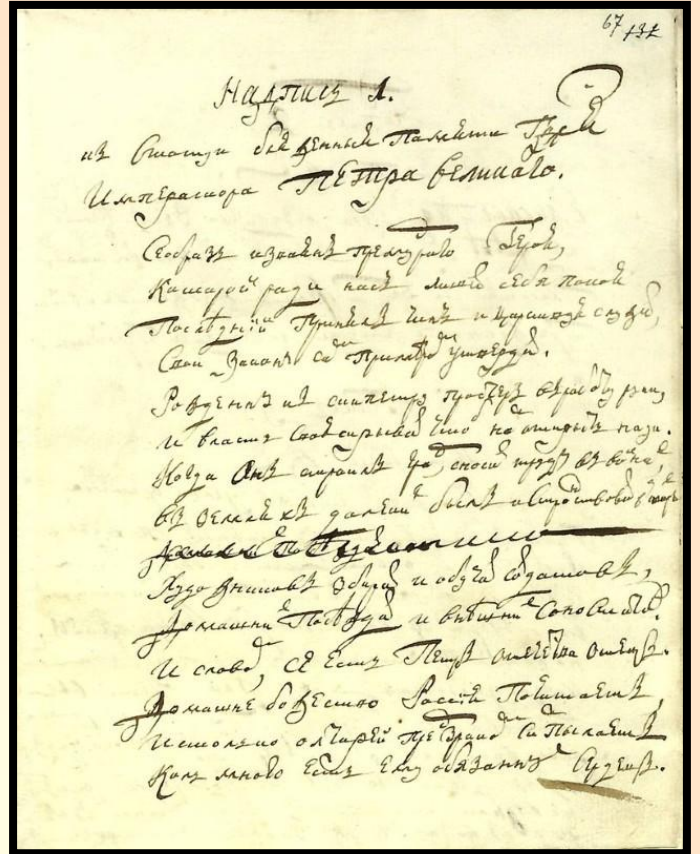 67 132
Надпись 1.
къ Статуи блаженныя Памяти Гдря
Императора Петра Великаго.
Се образъ изваянъ премудраго Героя,
ради насъ лишив себя покоя
Последний Принялъ чинъ и царствуя служил,
Свои Законы самъ Примеромъ утвердил.
Рожденны къ скипетру простеръ в работу руки,
и власть свою скрывал что намъ открыть науки.
Когда Онъ строилъ град, сносил труды въ войнах,
въ земляхъ далекихъ былъ и странствовал в моряхъ
Художниковъ збирал и обучал солдатовъ,
Домашнихъ Побеждал и внешних Сопостатов.
И словом, се есть Петръ отечества отецъ.
божество Россия Почитаетъ,
и столько олтарей предъ зраком сим Пылаетъ
Коль много есть ему обязанныхъ Сердецъ.